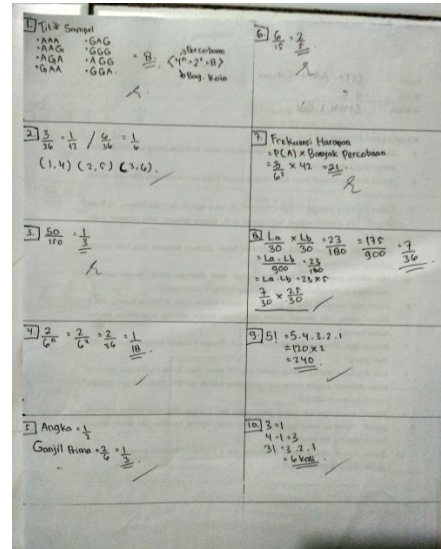 1. Titik Sampel
•AAA •GAG
•AAG •GGG
•AGA •AGG
•GAA •GGA.
= 8.
Percobaan
2. 3/36 = 1/12 / 6/36 = 1/6
(1,4) (2,5) (3,6).
3. 50/150 = 1/3
4. 2/6ⁿ = 2/6² = 2/36 = 1/18.
5. Angka = 1/2
Ganjil Prima = 2/6 = 1/3
6. 6/15 = 2/5
7. Frekuensi Harapan
= P(A) x Banyak Percobaan
= 3/6² x 42 = 21.
8. La/30 x Lb/30 = 23/180 = 175/900 = 7/36
= La . Lb/900 = 23/180
= La . Lb = 23 x 5
7/30 x 25/30
9. 5! = 5.4.3.2.1
= 120 x 2
= 240
10. 3 = 1
4 - 1 = 3
3! = 3.2.1
= 6 kali.